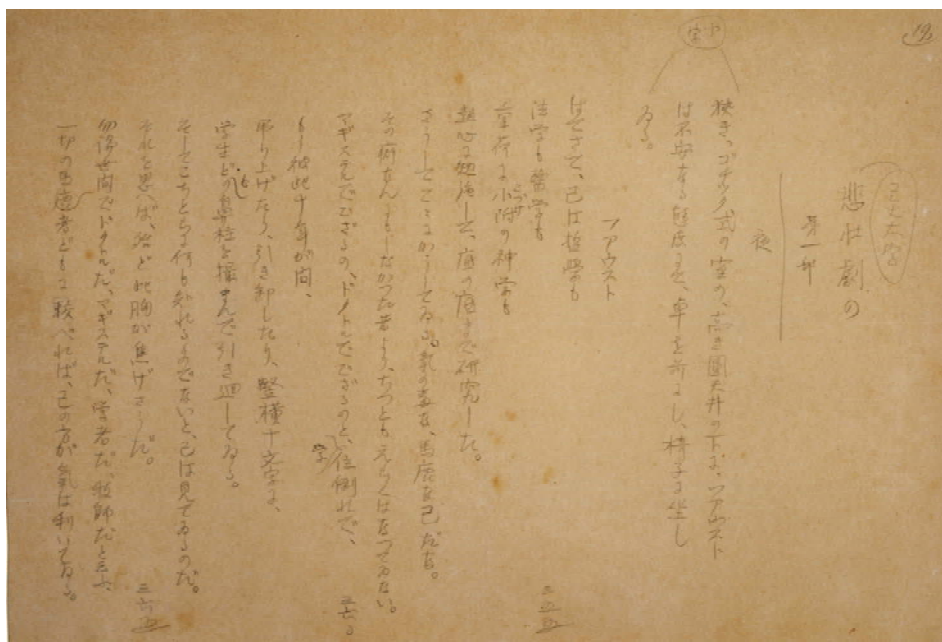 19
悲壮劇の
第一部
夜
狭き、ゴチック式の室の、高き円天井の下に、ファウスト
は不安なる態度にて、卓を前にし、椅子に坐し
ゐる。
ファウスト
はてさて、己は哲学も
法学も医学も
神学も
熱心に勉強して、底の底まで研究した。
さうしてここにかうしてゐる。気の毒な、馬鹿な己だな。
その癖なんにもしなかつた昔より、ちつともえらくはなつてゐない。
マギステルでござるの、ドクトルでござるのと、学位倒れで、
もう彼此十年が間、
弔り上げたり、引き卸したり、竪横十文字に、
学生どもの鼻柱を撮まんで引き廻してゐる。
そしてこちとらに何も知れるものでないと、己は見てゐるのだ。
それを思へば、殆ど此胸が焦げさうだ。
勿論世間でドクトルだ、マギステルだ、学者だ、牧師だと云ふ、
一切の馬鹿者どもに較べれば、己の方が気は利いてゐる。